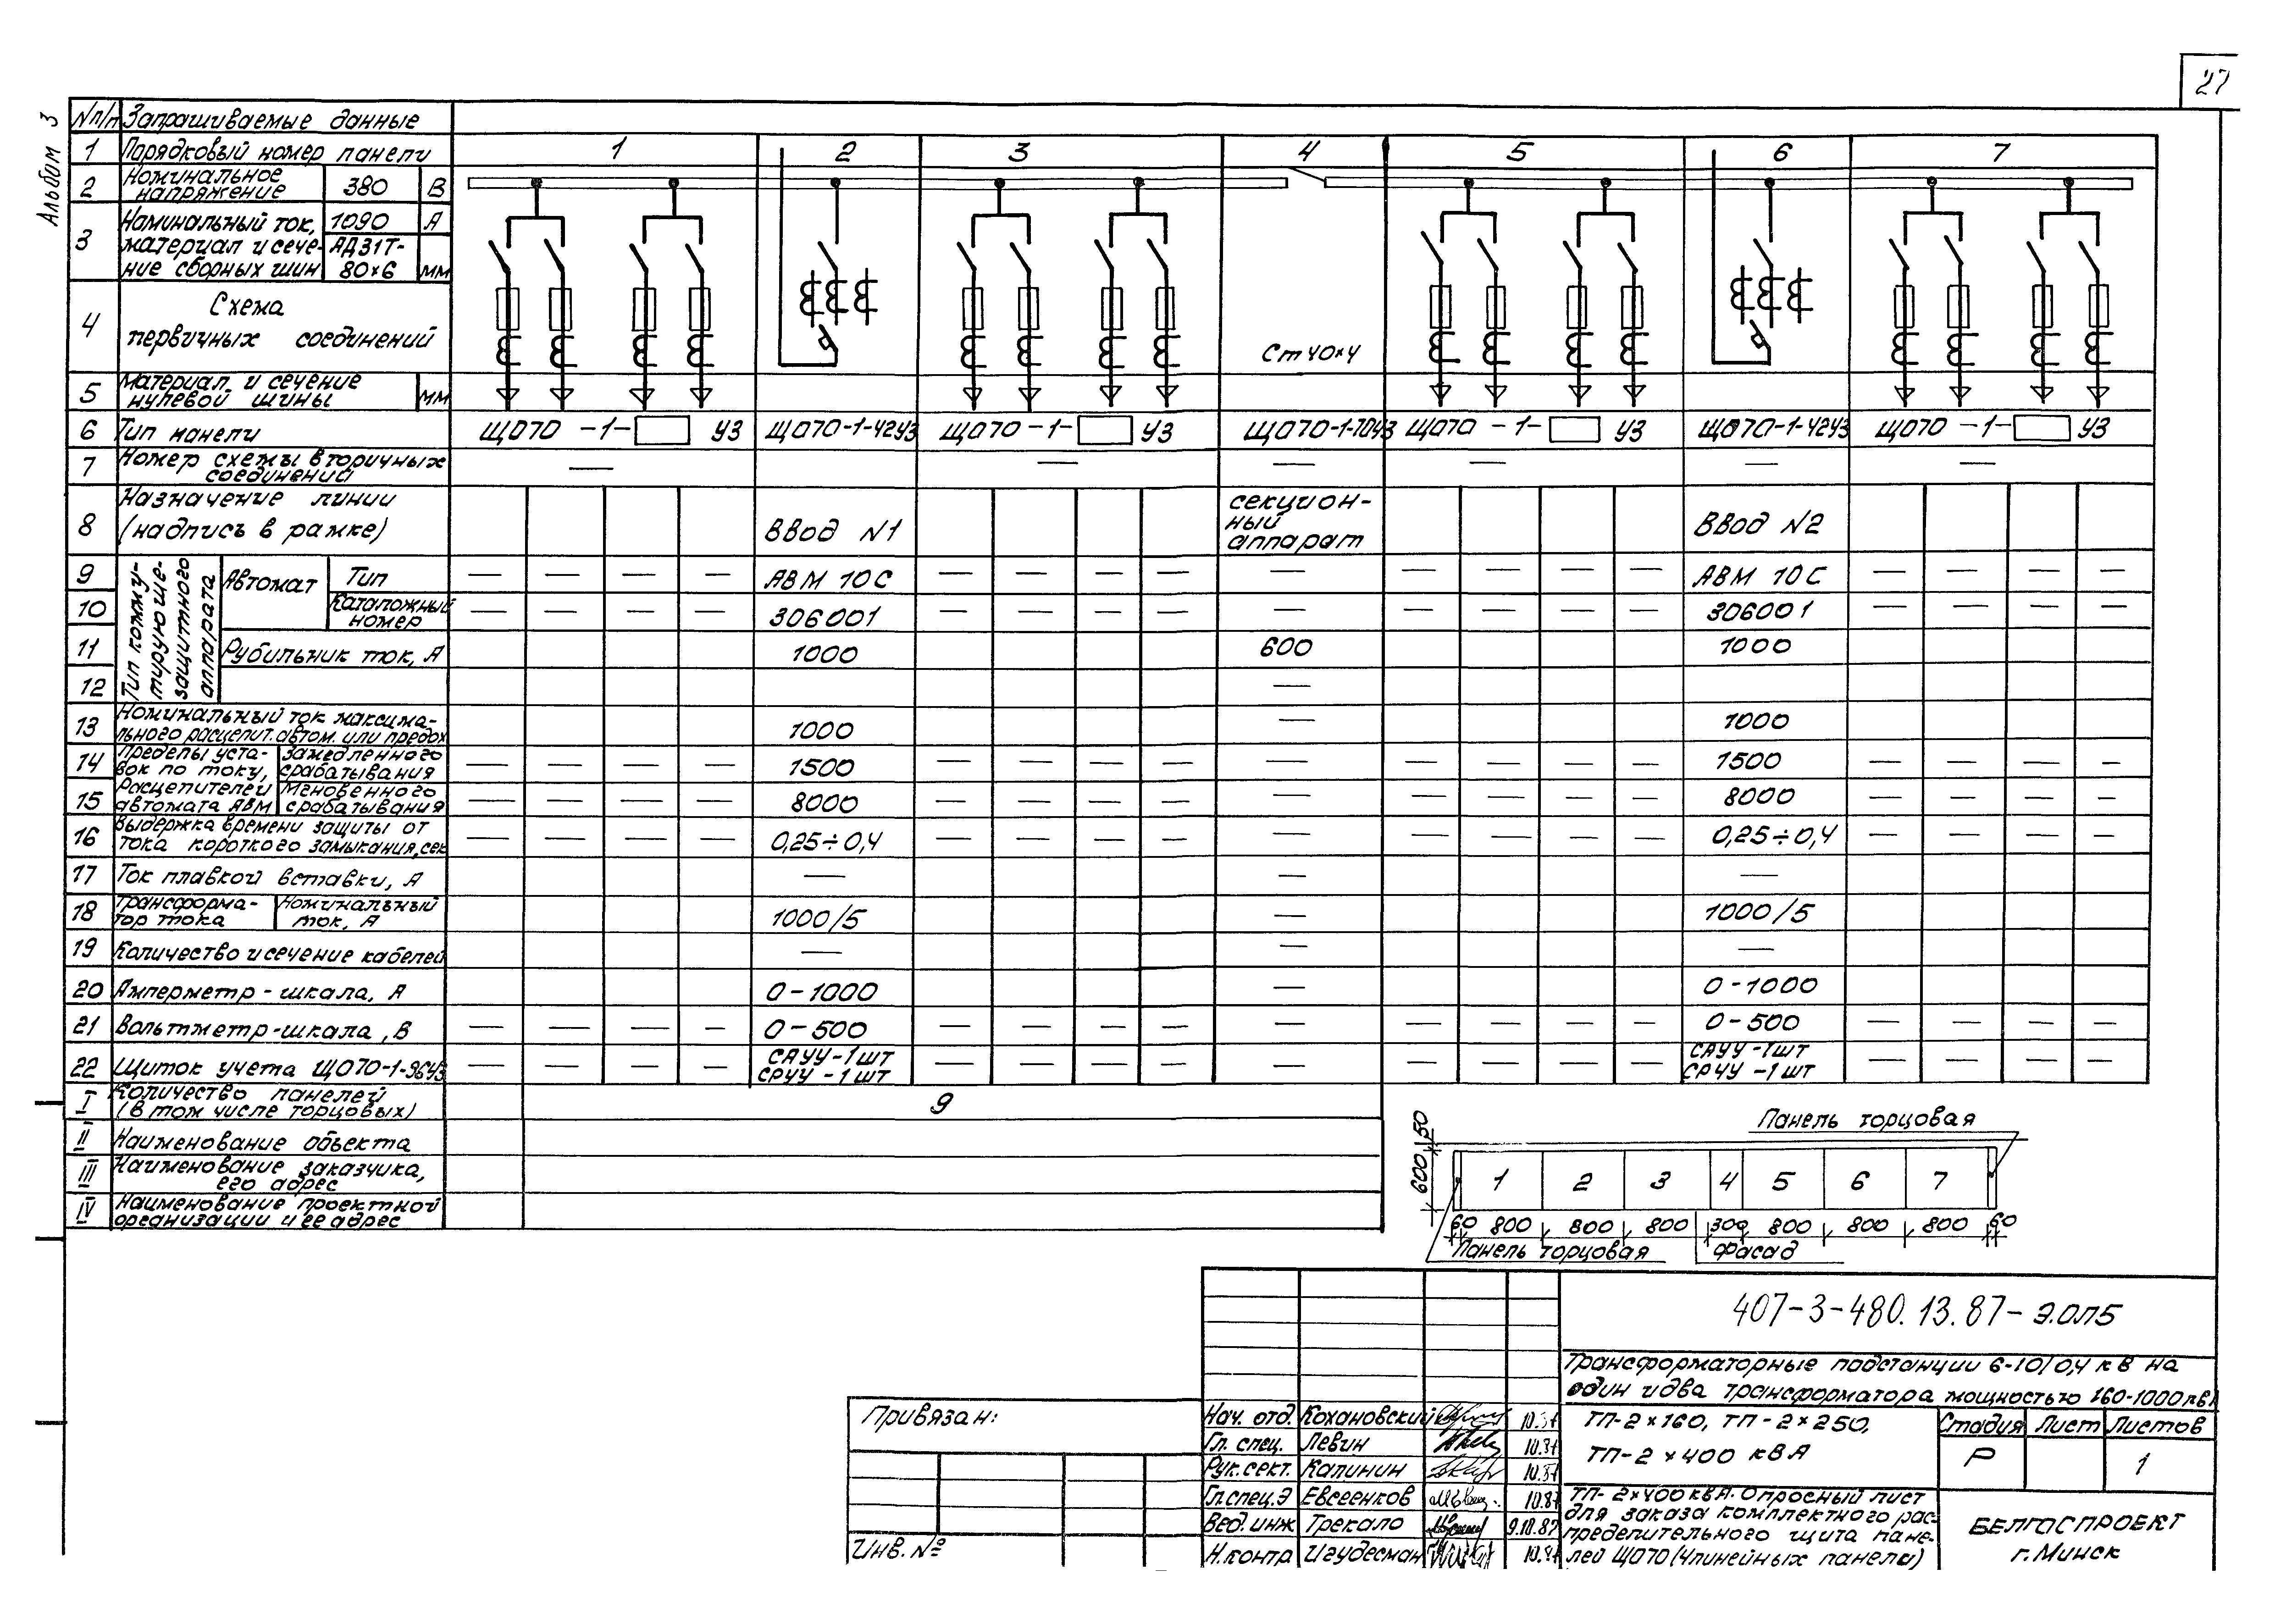 27
Альбом 3
№п/п Запрашиваемые данные
1 Порядковый номер панели 1 2 3 4 5 6 7
2 Номинальное напряжение 380 В
3 Номинальный ток, 1090 А
материал и сече- АД31Т-
ние сборных шин 80×6 мм
4 Схема
первичных соединений
Ст 40×4
5 Материал и сечение
нулевой шины мм
6 Тип панели ЩО70 -1- У3 ЩО70-1-42У3 ЩО70 -1- У3 ЩО70-1-70У3 ЩО70 -1- У3 ЩО70-1-42У3 ЩО70 -1- У3
7 Номер схемы вторичных
соединений — — — — — —
8 Назначение линии
(надпись в рамке) Ввод №1 секцион-
ный
аппарат Ввод №2
Тип комму-
тирующе-
защитного
аппарата
9 Автомат Тип — — — — АВМ 10С — — — — — — — — — АВМ 10С — — — —
10 Каталожный
номер — — — — 306001 — — — — — — — — — 306001 — — — —
11 Рубильник ток, А 1000 600 1000
12 —
13 Номинальный ток максима-
льного расцепит. автом. или предох 1000 — 1000
14 Пределы уста- замедленного
вок по току, срабатывания — — — — 1500 — — — — — — — — — 1500 — — — —
15 Расцепителей Мгновенного
автомата АВМ срабатывания — — — — 8000 — — — — — — — — — 8000 — — — —
16 Выдержка времени защиты от
тока короткого замыкания, сек — — — — 0,25÷0,4 — — — — — — — — — 0,25÷0,4 — — — —
17 Ток плавкой вставки, А — — —
18 Трансформа- Номинальный
тор тока ток, А 1000/5 — 1000/5
19 Количество и сечение кабелей — — —
20 Амперметр - шкала, А 0-1000 — 0-1000
21 Вольтметр-шкала, В — — — — 0-500 — — — — — — — — — 0-500 — — — —
22 Щиток учета ЩО70-1-96У3 — — — — САУУ-1шт
СРУУ-1шт — — — — — — — — — САУУ-1шт
СРЧУ-1шт — — — —
I Количество панелей
(в том числе торцовых) 9
II Наименование объекта
III Наименование заказчика,
его адрес
IV Наименование проектной
организации и ее адрес
Панель торцовая
600 50
1 2 3 4 5 6 7
60 800 800 800 300 800 800 800 60
Панель торцовая Фасад
407-3-480.13.87-Э.ОЛ5
Трансформаторные подстанции 6-10/0,4 кВ на
один и два трансформатора мощностью 160-1000 кВА
Привязан:
Инв. №
Нач. отд. Кохановский 10.87
Гл. спец. Левин 10.87
Рук. сект. Калинин 10.87
Гл.спец.Э Евсеенков 10.87
Вед. инж Трекало 9.10.87
Н.контр Игудесман 10.87
ТП-2×160, ТП-2×250,
ТП-2×400 кВА
Стадия Лист Листов
Р 1
ТП-2×400кВА. Опросный лист
для заказа комплектного рас-
пределительного щита пане-
лей ЩО70 (4 линейных панели)
БЕЛГОСПРОЕКТ
г. Минск